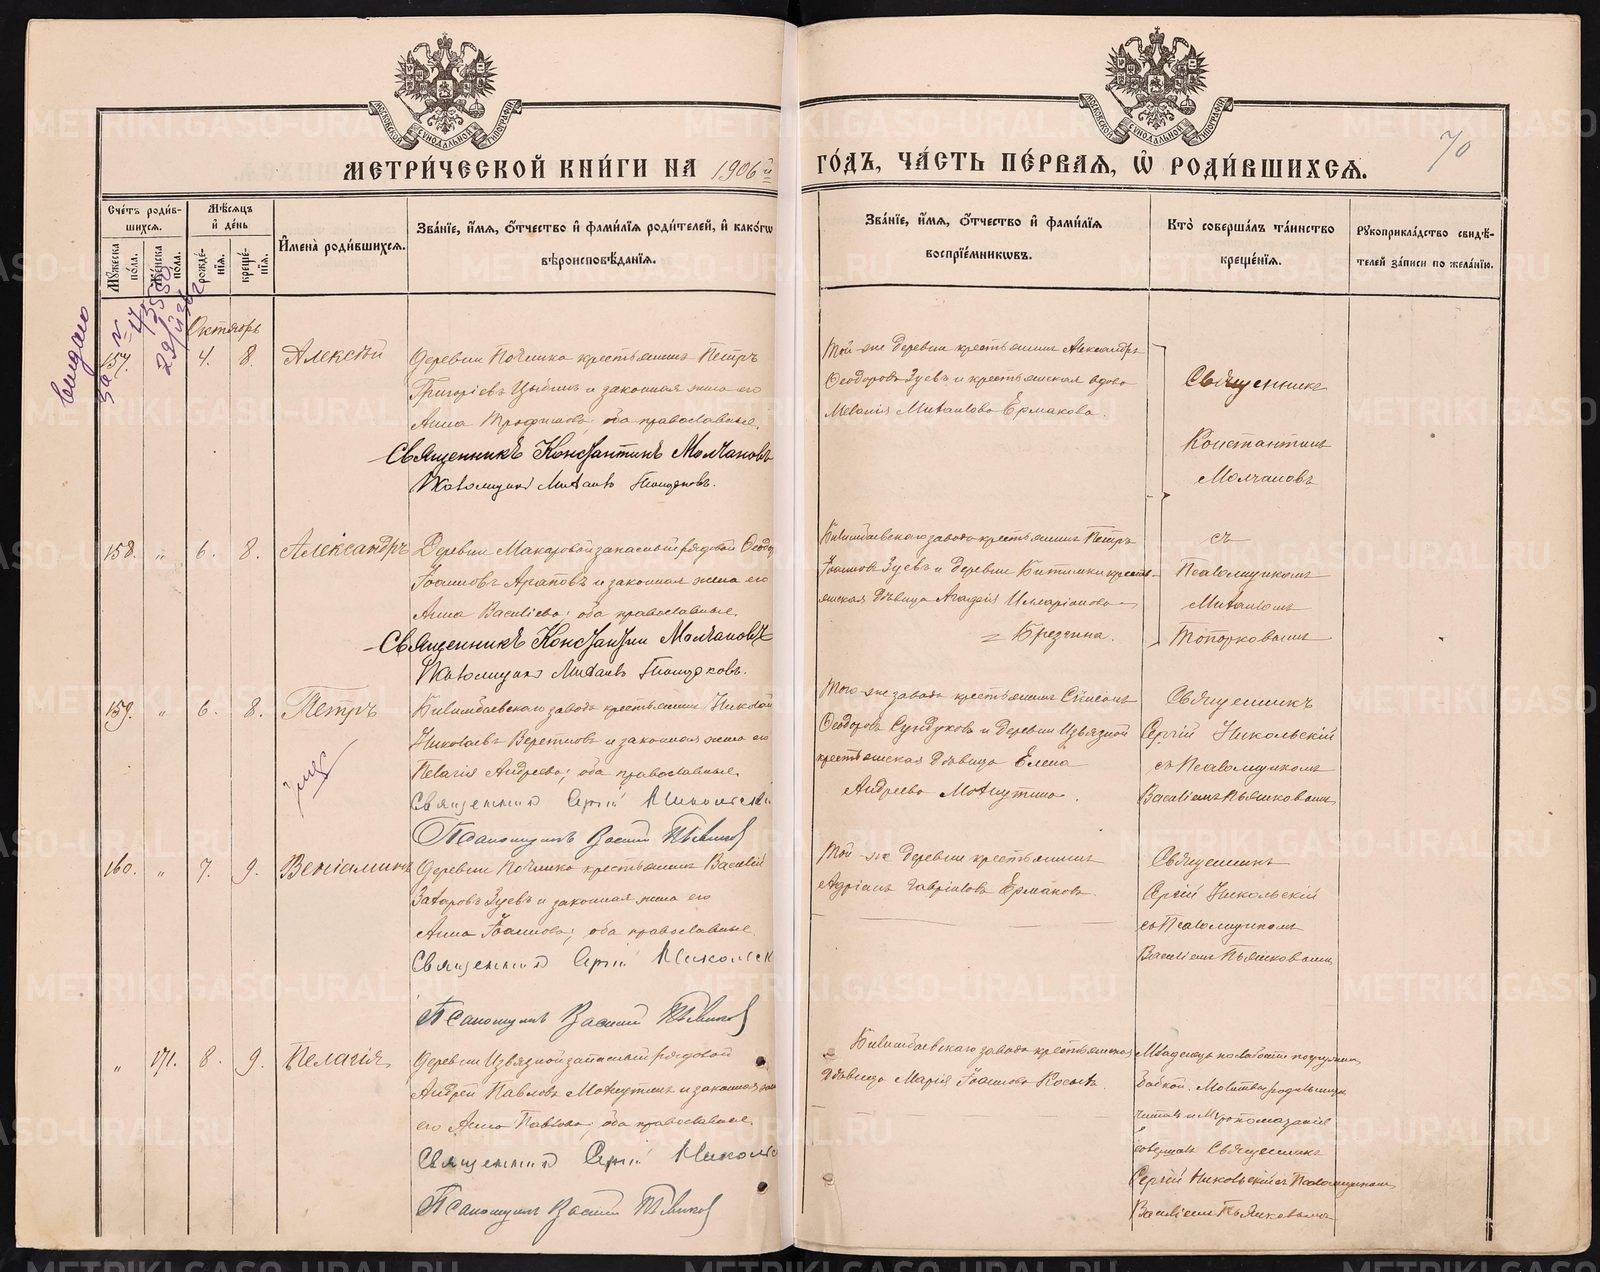 МОСКОВСКОЙ СѴНОДАЛЬНОЙ ТИПОГРАФІИ
МОСКОВСКОЙ СѴНОДАЛЬНОЙ ТИПОГРАФІИ
70
МЕТРИ́ЧЕСКОЙ КНИ́ГИ НА 1906й ГО́ДЪ, ЧА́СТЬ ПЕ́РВАЯ, Ѡ РОДИ́ВШИХСѦ.
Сче́тъ роди́в-
шихся.
Мѣ́сяцъ
и́ де́нь
Мꙋ́жеска по́ла.
Же́нска пола.
рожде́-
нїѧ.
креще́-
нїѧ.
И҆мена̀ роди́вшихсѧ.
Зва́нїе, и҆́мѧ, ѻ҆́тчество и҆ фами́лїѧ роди́телей, и҆ како́гѡ
вѣроисповѣ́данїѧ.
Зва́нїе, и҆́мѧ, ѻ҆́тчество и҆ фами́лїѧ
воспрїе́мникѡвъ.
Кто̀ соверша́лъ та́инство
креще́нїѧ.
Рꙋкоприкла́дство свидѣ́-
телей за́писи по жела́нїю.
выдано
за №
Октябрь
157. 4. 8. Алексій
Деревни Починка крестьянинъ Петръ
Григорьевъ Цыбинъ и законная жена его
Анна Трофимова, оба православные.
Священникъ Константинъ Молчановъ
Псаломщикъ Михаилъ Топорковъ.
Той-же деревни крестьянинъ Александръ
Ѳеодоровъ Зуевъ и крестьянская вдова
Меланія Михаилова Ермакова.
Священникъ
Константинъ
Молчановъ
съ
Псаломщикомъ
Михаиломъ
Топорковымъ
158. " 6. 8. Александръ
Деревни Макаровой запасный рядовой Ѳеодоръ
Іоанновъ Араповъ и законная жена его
Анна Василіева; оба православные.
Священникъ Константинъ Молчановъ
Псаломщикъ Михаилъ Топорковъ.
Билимбаевскаго завода крестьянинъ Петръ
Іоанновъ Зуевъ и деревни Битимки кресть-
янская дѣвица Агафія Илларіонова
= Брезгина.
159. " 6. 8. Петръ
Билимбаевскаго завода крестьянинъ Николай
Николаевъ Веретновъ и законная жена его
Пелагія Андреева; оба православные.
Священникъ Сергій Никольскій
Псаломщикъ Василій Пьянковъ
Того-же завода крестьянинъ
Ѳеодоровъ Сундуковъ и деревни Извязной
крестьянская дѣвица Елена
Андреева Мохнуткина.
Священникъ
Сергій Никольскій
съ Псаломщикомъ
Василіемъ Пьянковымъ
160. " 7. 9. Веніаминъ
Деревни Починка крестьянинъ Василій
Захаровъ Зуевъ и законная жена его
Анна Іоаннова; оба православные.
Священникъ Сергій Никольск
Псаломщикъ Василій Пьянковъ
Той-же деревни крестьянинъ
Адріанъ Гавріиловъ Ермаковъ.
Священникъ
Сергій Никольскій
съ Псаломщикомъ
Василіемъ Пьянковымъ
" 171. 8. 9. Пелагія
Деревни Извязной запасный рядовой
Андрей Павловъ Мохнуткинъ и законная жена
его Анна Павлова; оба православные.
Священникъ Сергій Никольс
Псаломщикъ Василій Пьянковъ
Билимбаевскаго завода крестьянская
дѣвица Марія Іоаннова Косыхъ.
Младенецъ по слабости погружена
бабкой. Молитвы родильницѣ
читалъ и Мѵропомазаніе
совершилъ Священникъ
Сергій Никольскій съ Псаломщикомъ
Василіемъ Пьянковымъ
METRIKI.GASO-URAL.RU